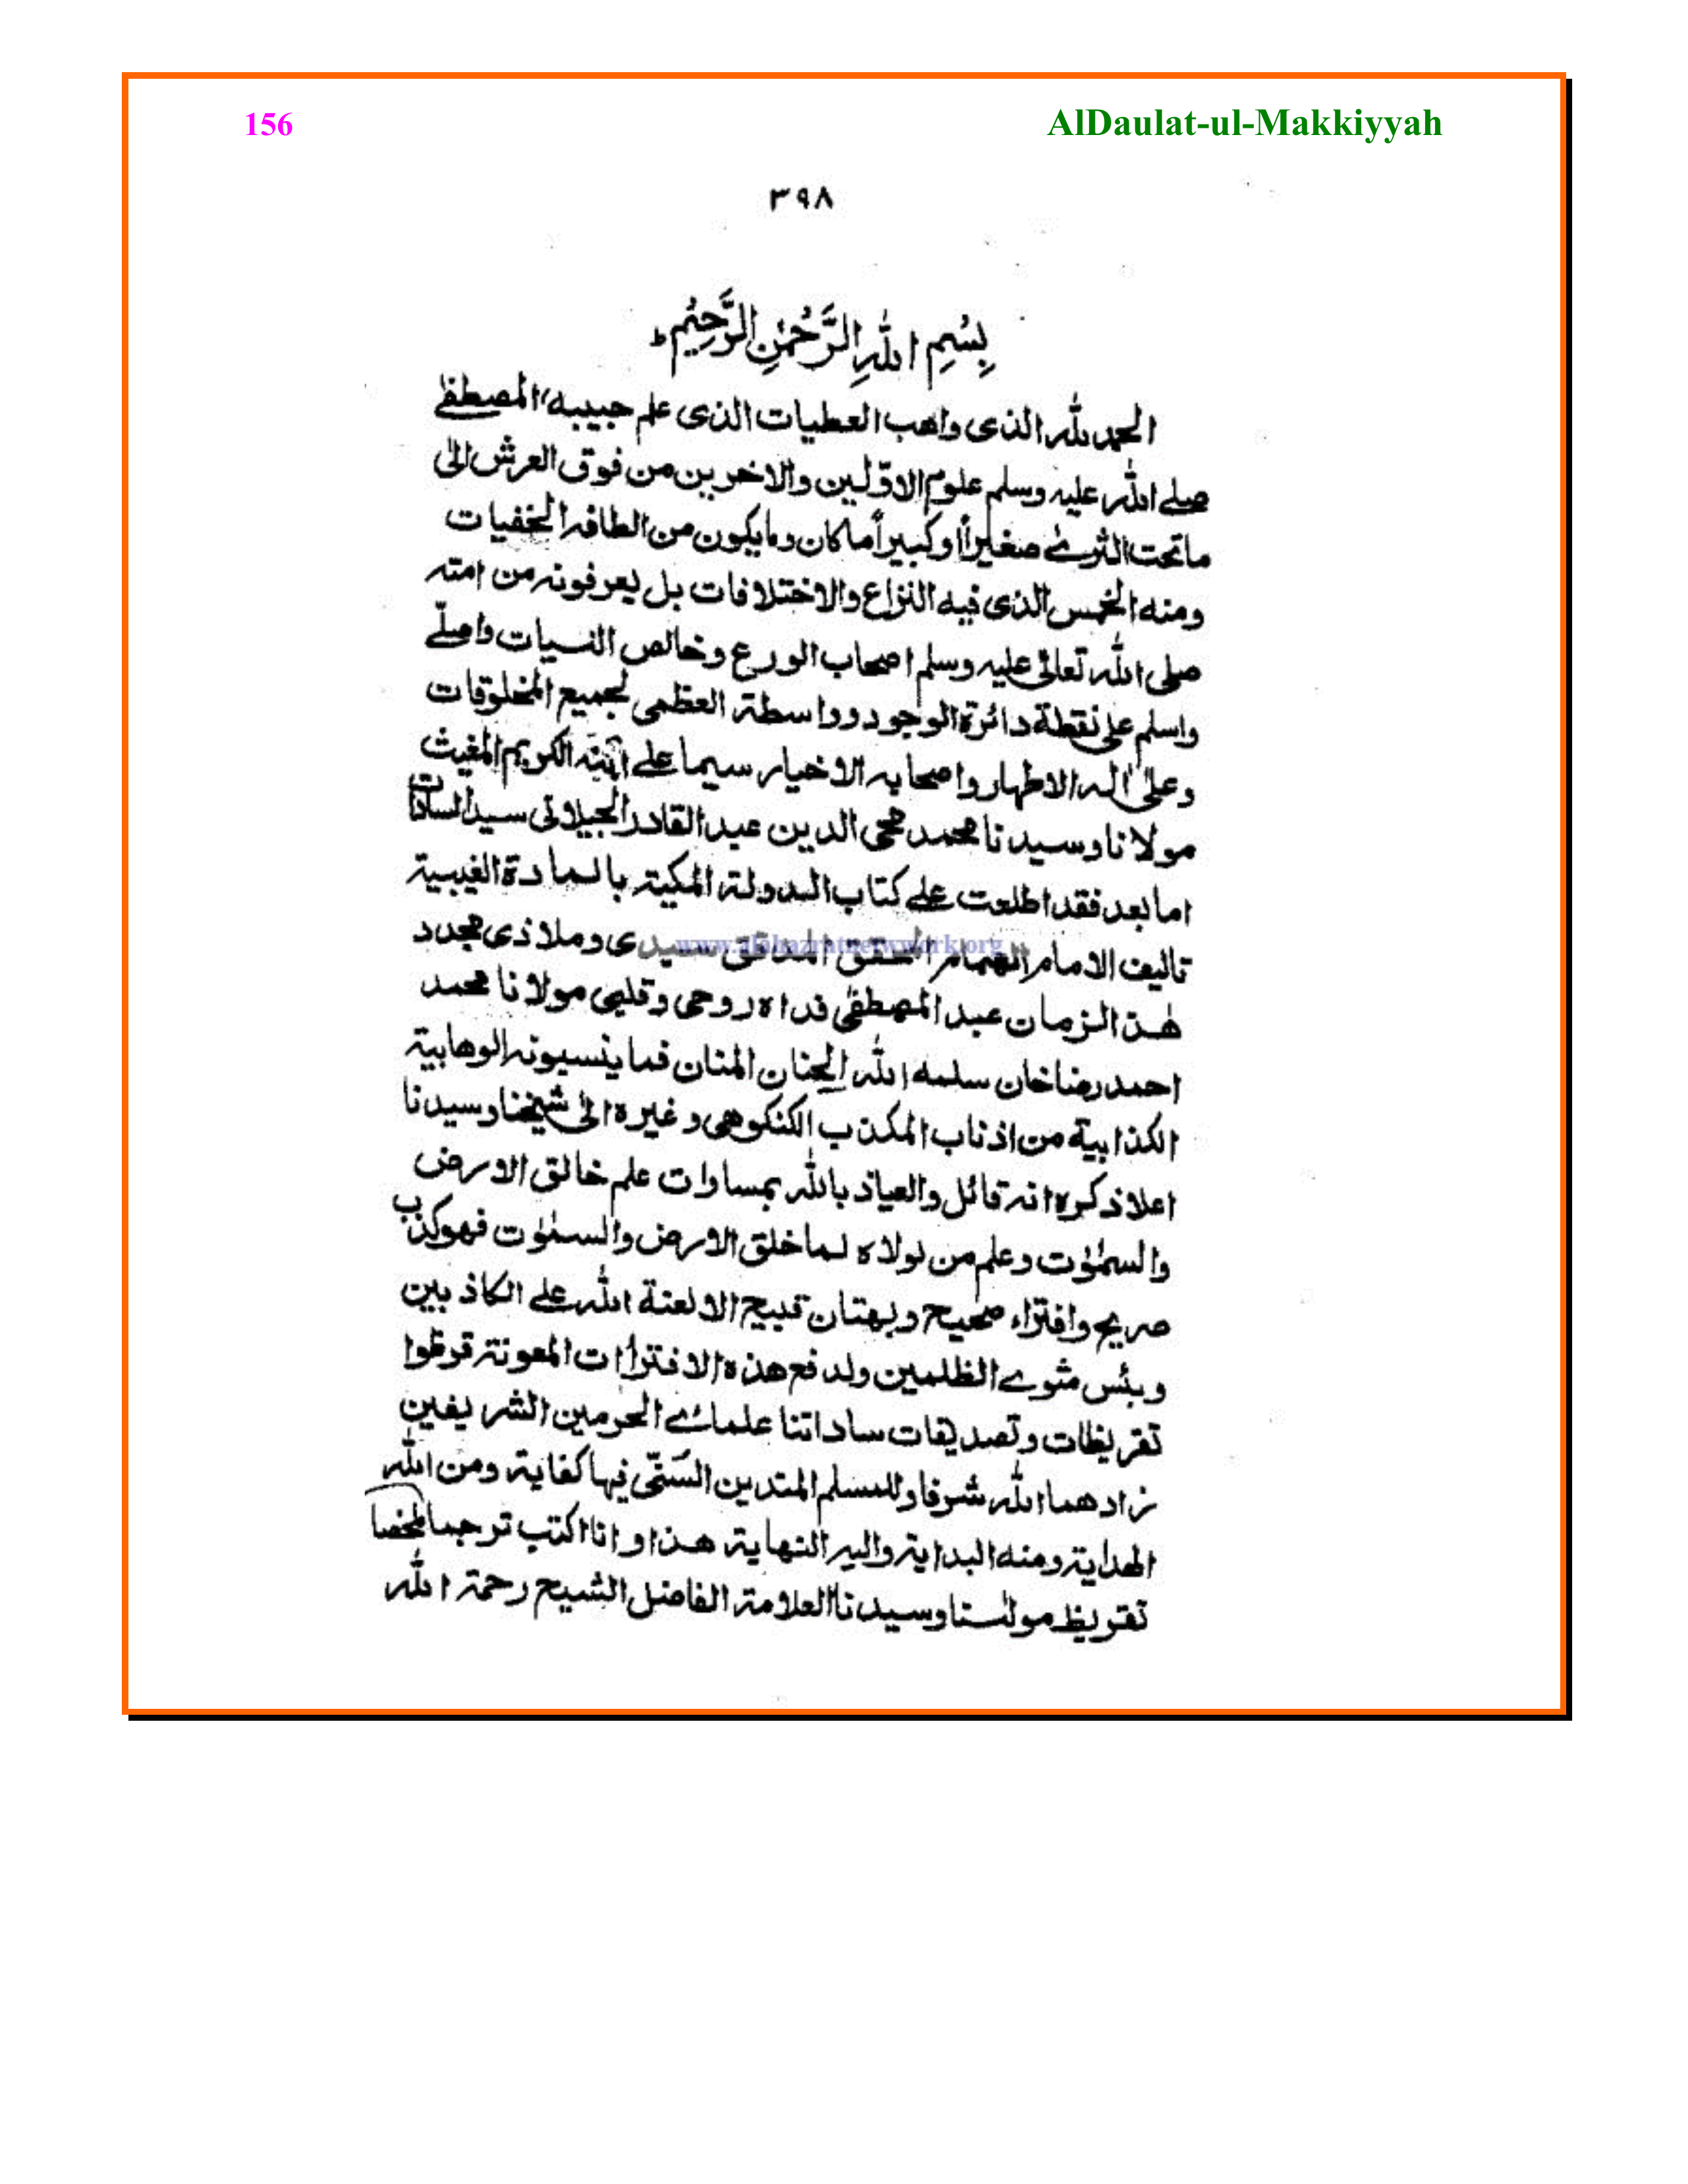 156 AlDaulat-ul-Makkiyyah
٣٩٨
بِسْمِ اللهِ الرَّحْمٰنِ الرَّحِيْمِ ط
الحمد لله الذى واهب العطيات الذى علم حبيبه المصطفٰے
صلے الله عليه وسلم علوم الاوّلين والاخرين من فوق العرش الىٰ
ماتحت الثرىٰ صغيراً اوكبيراً ماكان ومايكون من الطافه الخفيات
ومنه الخمس الذى فيه النزاع والاختلافات بل يعرفونه من امته
صلى الله تعالىٰ عليه وسلم اصحاب الورع وخالص النسيات واصلّے
واسلم على نقطة دائرة الوجود وواسطة العظمى لجميع المخلوقات
وعلىٰ اٰله الاطهار واصحابه الاخيار سيما علے ابنه الكريم المغيث
مولانا وسيدنا محمد محى الدين عبد القادر الجيلانى سيد السادات
اما بعد فقد اطلعت علے كتاب الدولة المكية بالمادة الغيبية
تاليف الامام الهمام المحقق المدقق سيدى وملاذى مجدد
هٰذ الزمان عبد المصطفٰى فداه روحى وقلبى مولانا محمد
احمد رضاخان سلمه الله الحنان المنان فما ينسبونه الوهابية
الكذابية من اذناب المكذب الكنكوهى وغيره الىٰ شيخنا وسيدنا
اعلاذكره انه قائل والعياذ بالله بمساوات علم خالق الارض
والسمٰوٰت وعلم من لولاه لما خلق الارض والسمٰوٰت فهو كذب
صريح وافتراء صحيح وبهتان قبيح الا لعنة الله علے الكاذبين
وبئس مثوے الظلمين ولدفع هذه الافتراات المعونة قرظوا
تقريظات وتصديقات ساداتنا علمائے الحرمين الشريفين
زادهما الله شرفا وللمسلم المتدين السّنّى فيها كفاية ومن الله
الهداية ومنه البداية واليه النهاية هذا وانا اكتب ترجما ملخصا
تقريظ مولٰسنا وسيدنا العلامة الفاضل الشيح رحمة الله
www.alahazratnetwork.org